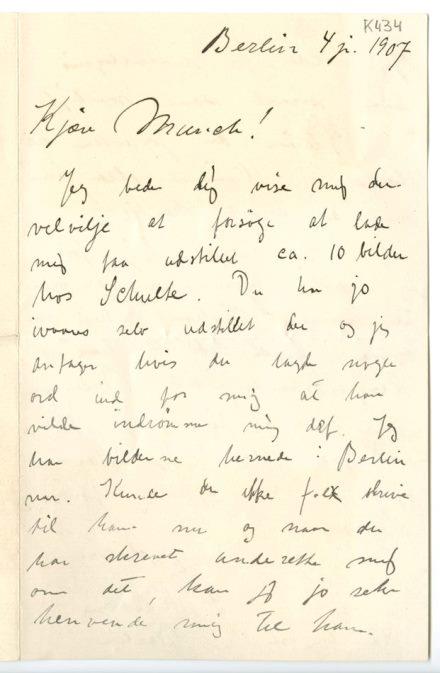 K434
Berlin 4 j. 1907
Kjære Munch!
Jeg beder dig vise mig den
velvilje at forsøge at lade
mig faa udstillet ca. 10 bilder
hos Schulte. Du har jo
selv udstillet der og jeg
antager hvis du lagde nogle
ord ind for mig at han
vilde indrømme mig det. Jeg
har bilderne hernede i Berlin
nu. Kunde du ikke skrive
til ham nu og naar du
har skrevet underrette mig
om det, kan jeg jo selv
henvende mig til ham.